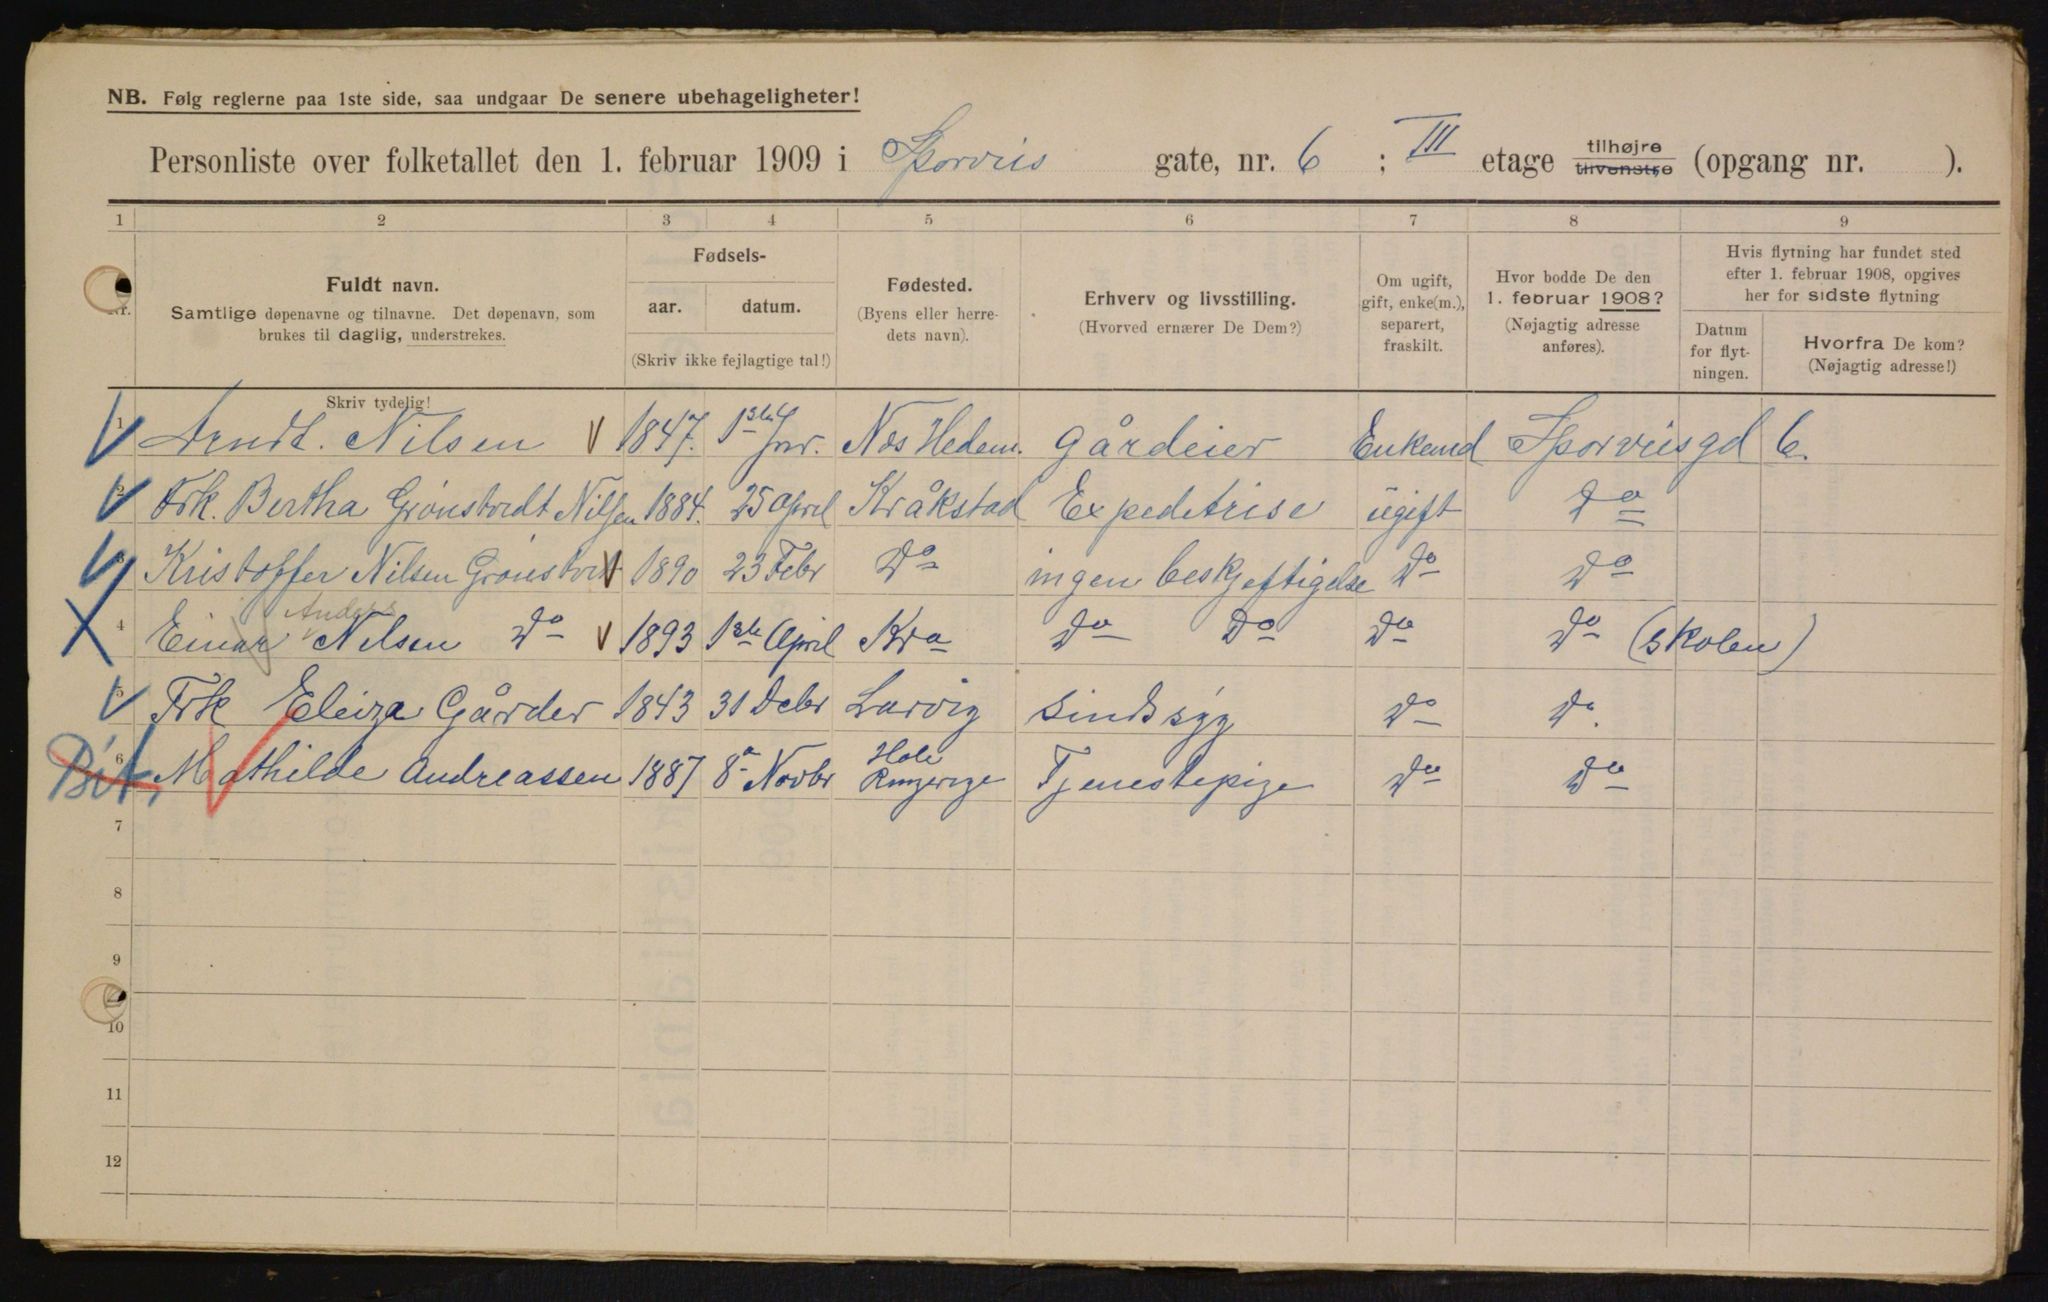 NB. Følg reglerne paa 1ste side, saa undgaar De senere ubehageligheter!
Personliste over folketallet den 1. februar 1909 i Sporveis gate, nr. 6 ; III etage tilhøjre tilvenstre (opgang nr. ).
1 2 3 4 5 6 7 8 9
Nr.
Fuldt navn.
Samtlige døpenavne og tilnavne. Det døpenavn, som
brukes til daglig, understrekes.
Fødsels-
aar. datum.
(Skriv ikke fejlagtige tal!)
Fødested.
(Byens eller herre-
dets navn).
Erhverv og livsstilling.
(Hvorved ernærer De Dem?)
Om ugift,
gift, enke(m.),
separert,
fraskilt.
Hvor bodde De den
1. februar 1908?
(Nøjagtig adresse
anføres).
Hvis flytning har fundet sted
efter 1. februar 1908, opgives
her for sidste flytning
Datum
for flyt-
ningen.
Hvorfra De kom?
(Nøjagtig adresse!)
Skriv tydelig!
1 Arndt. Nilsen 1847. 1ste Jnr. Næs Hedem. Gårdeier Enkemd Sporveisgd 6.
2 Frk. Bertha Grønstvedt Nilsen 1884. 25 April Kråkstad Expeditrise ugift Do
3 Kristoffer Nilsen Grønstvedt 1890 23 Febr Do ingen beskjeftigelse Do Do
Anders
4 Einar Nilsen Do 1893 1ste April Kra Do Do Do Do (skolen)
5 Frk Eleiza Gårder 1843 31 Debr Larvig Sindssyg Do Do.
6 Mathilde Andreassen 1887 8de Novbr Hole Ringerige Tjenestepige Do Do
7
8
9
10
11
12